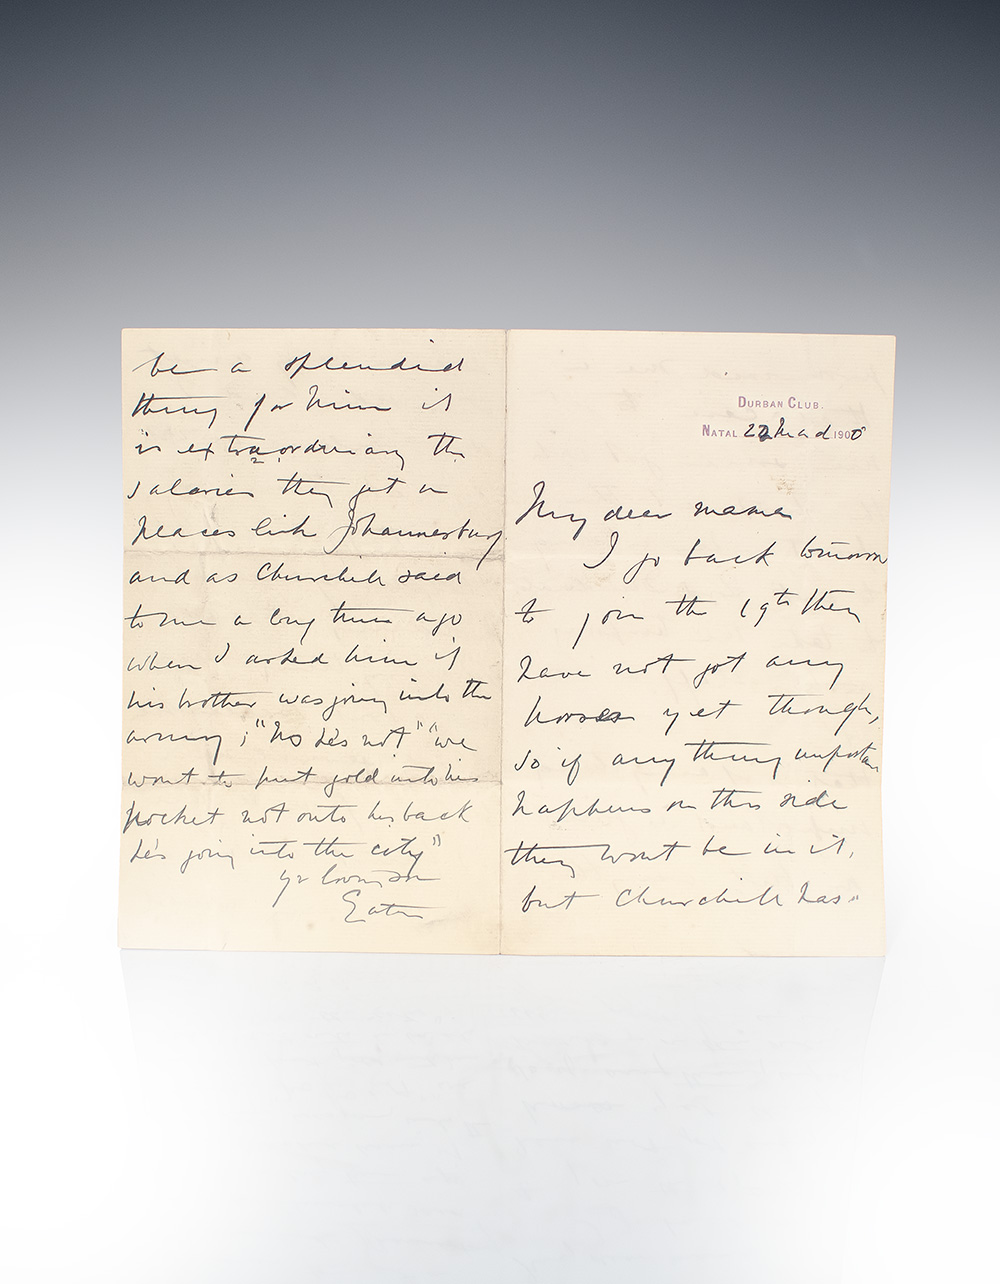 be a splendid
thing for him it
is extraordinary the
salaries they get in
places like Johannesburg
and as Churchill said
to me a long time ago
when I asked him if
his brother was going into the
army; "No he's not" "we
want to put gold into his
pocket not onto his back
he's going into the city"
yr loving son
DURBAN CLUB.
NATAL 22 March 1900
My dear mama
I go back tomorrow
to join the 19th they
have not got any
horses yet though,
so if anything important
happens on this side
they wont be in it,
but Churchill has